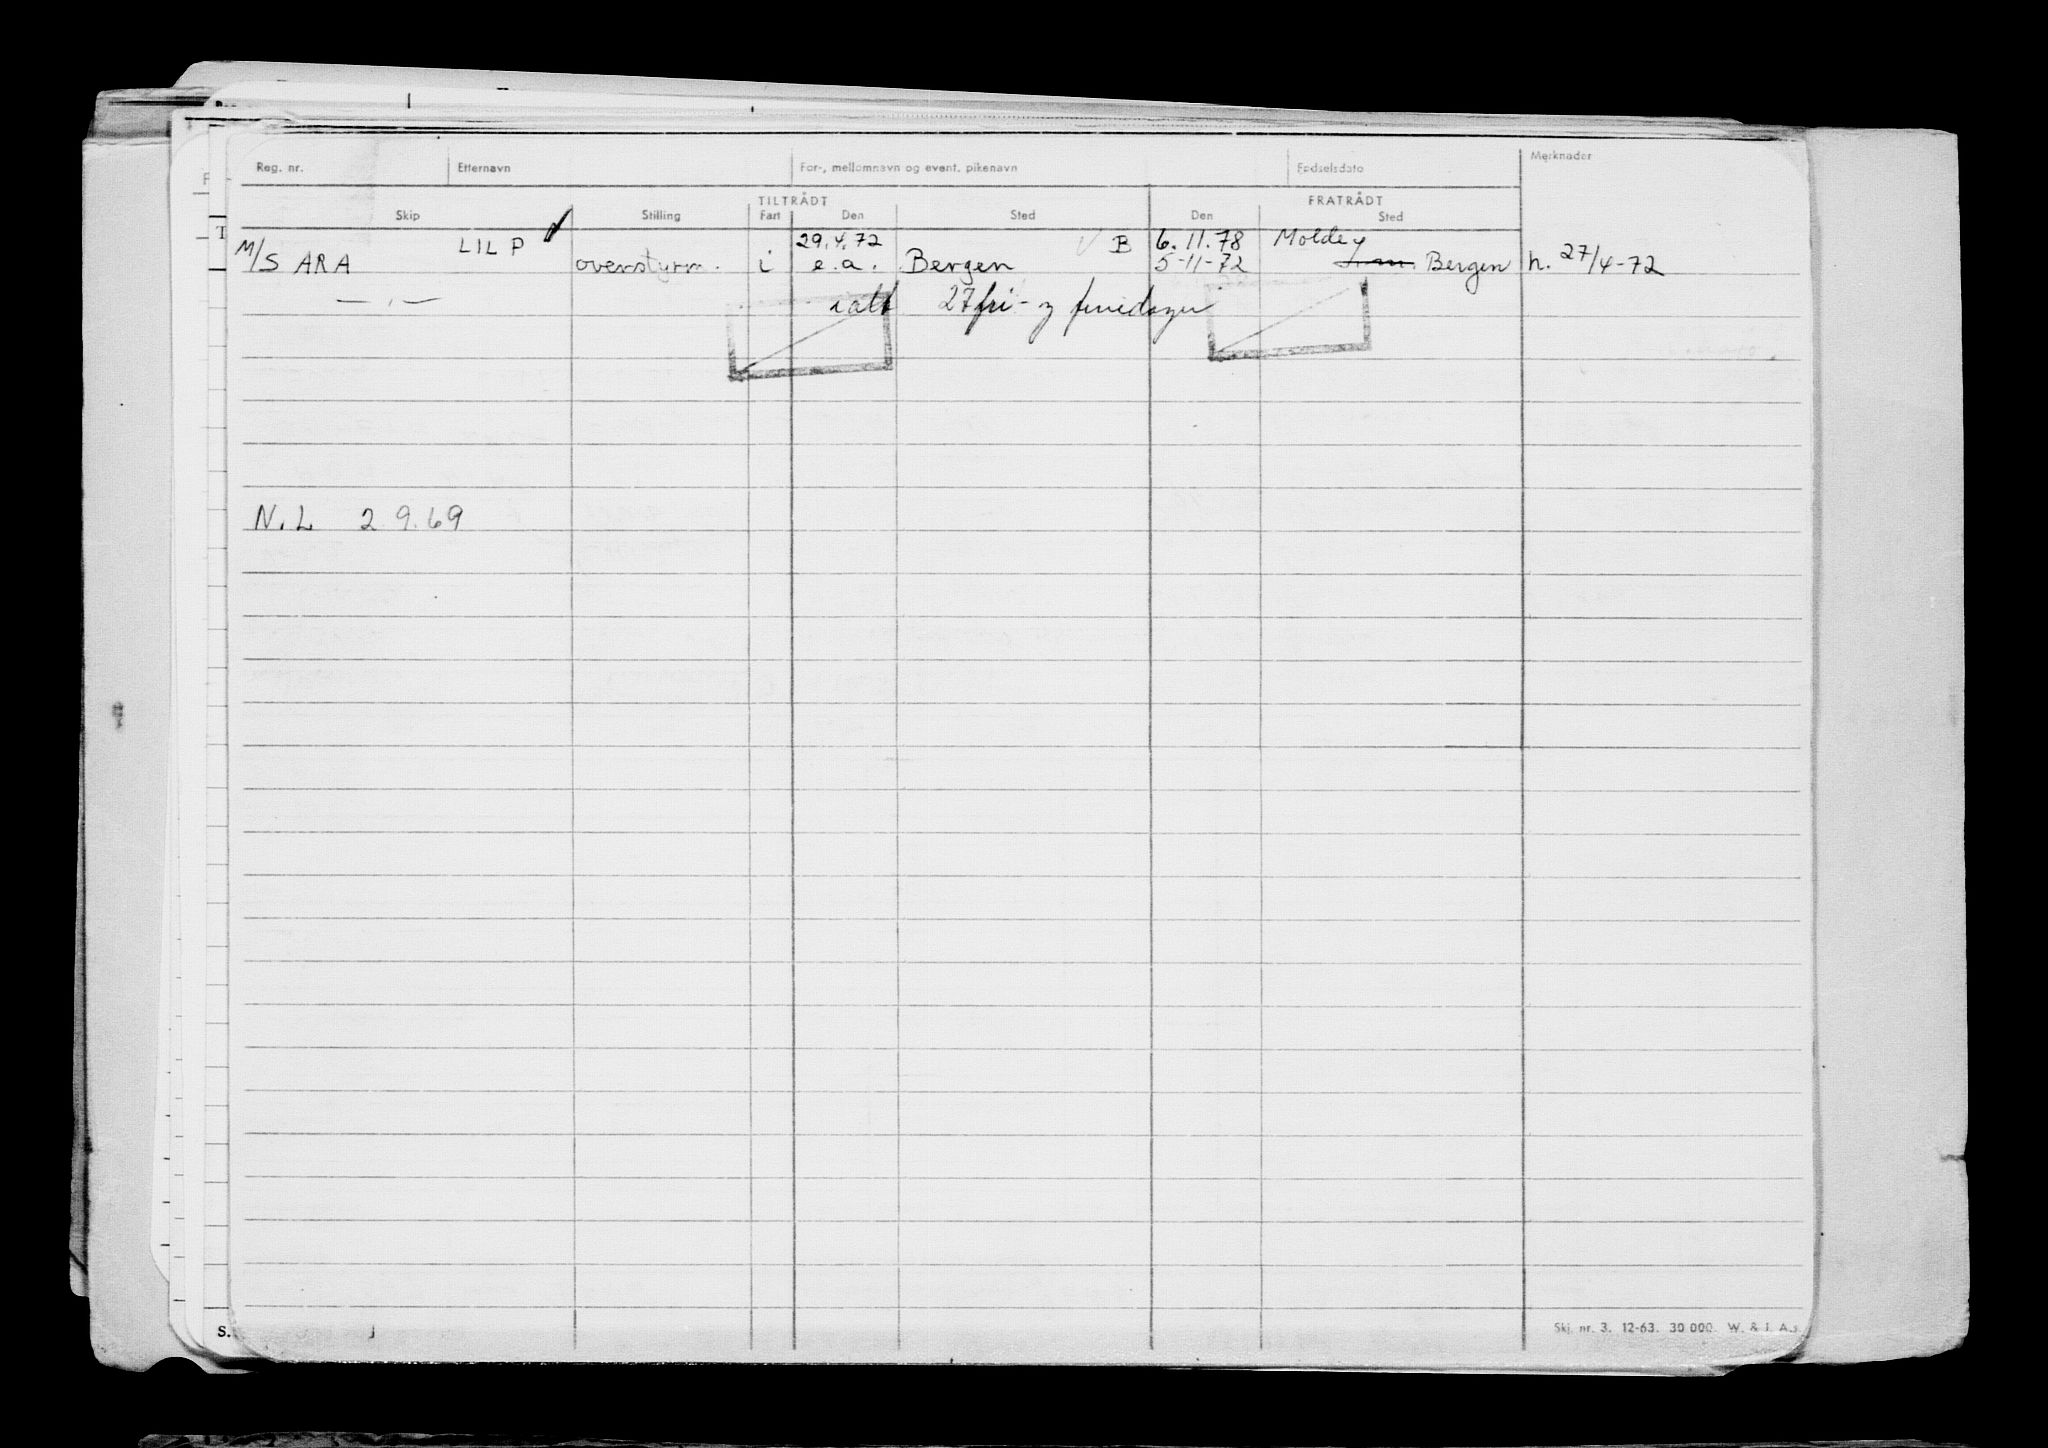 Reg. nr. Etternavn For-, mellomnavn og event. pikenavn Fødselsdato Merknader
TILTRÅDT FRATRÅDT
Skip Stilling Fart Den Sted Den Sted
LILP 29.4.72 B 6.11.78 Molde
M/S ARA overstyrm. i e.a. Bergen 5-11-72 Bergen h. 27/4-72
— " — ialt 27 fri- og feriedager
N.L 2.9.69
S.
Skj. nr. 3. 12-63. 30 000. W. & J. A.s